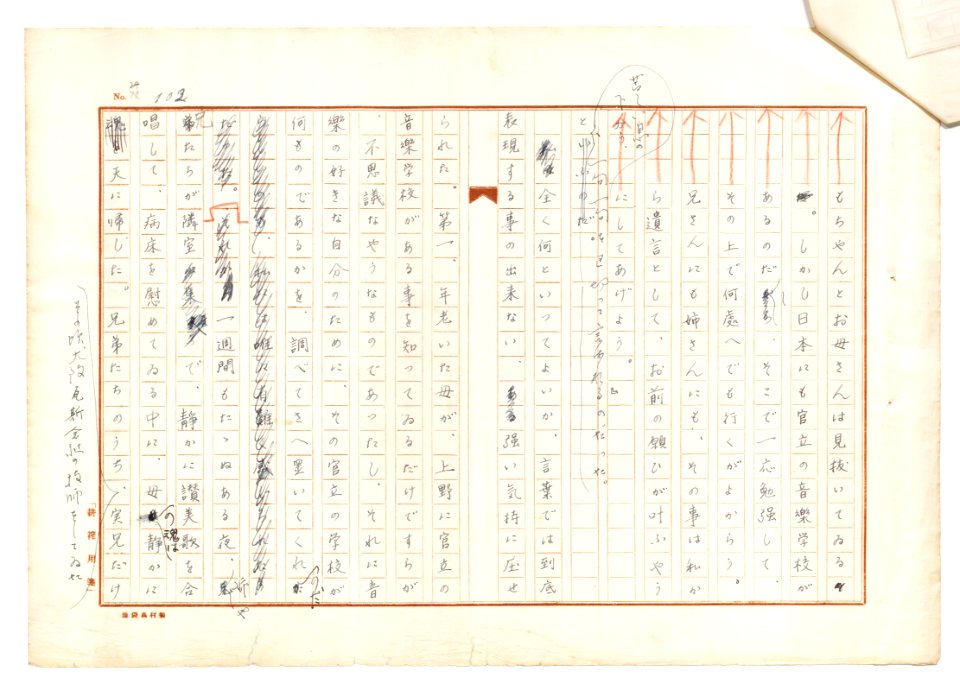 No. 102
もちやんとお母さんは見抜いてゐる
。しかし日本にも官立の音樂学校が
あるのだ そこで一応勉強して、
その上で何處へでも行くがよからう。
兄さんにも姉さんにも、その事は私か
ら遺言として、お前の願ひが叶ふやう
にしてあげよう。』
苦しい息の
下から、
一句一句 言はれるのだつた。
と
全く何といつてよいか、言葉では到底
表現する事の出来ない、強い気持に圧せ
られた。第一、年老いた母が、上野に官立の
音樂学校がある事を知つてゐるだけですらが
、不思議なやうなものであつたし、それに音
樂の好きな自分のために、その官立の学校が
何ものであるかを、調べてさへ置いてくれ
のだ。
一週間もたゝぬある夜、
兄弟たちが隣室 集 で、静かに讃美歌を合
唱して、病床を慰めてゐる中に、母 静かに
の魂は
天に帰した。兄弟たちのうち、実兄だけ
その頃、大阪瓦斯会社の技師をしてゐた
耕筰用箋